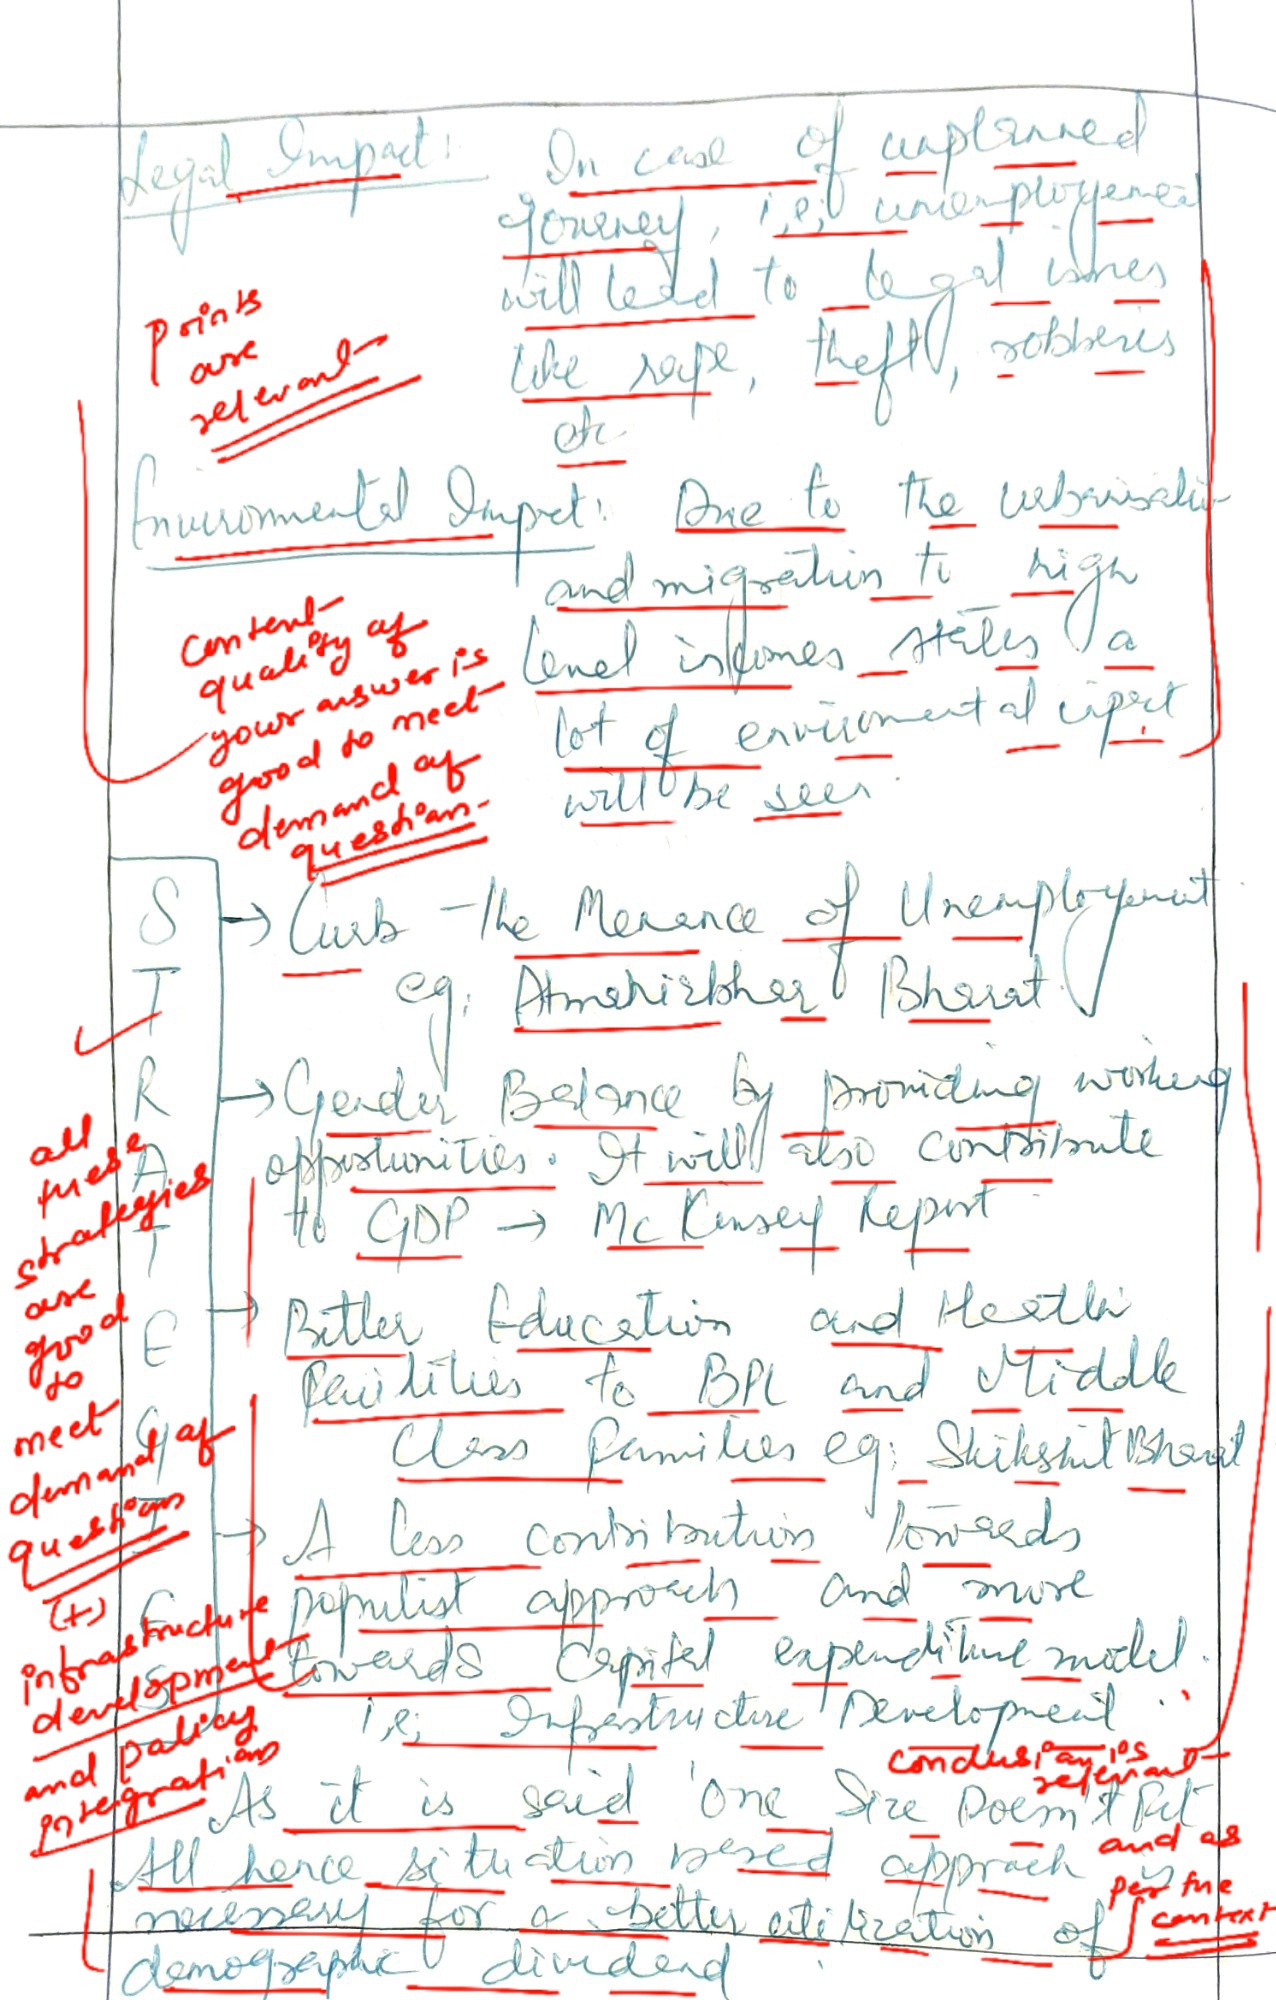 Legal Impact: In case of unplanned
Journey, i,e; unemployement
will lead to legal issues
like rape, theft, robberies
etc
Points
are
relevant
Environmental Impact: Due to the urbanisation
and migration to high
level incomes states a
lot of enviromental impact
will be seen
Content
quality of
your answer is
good to meet
demand of
question
S
T
R
A
T
E
G
I
E
S
→ Curb the Menance of Unemployment
eg; Atmanirbhar Bharat
→ Gender Balance by providing working
opportunities. It will also contribute
to GDP → McKinsey Report
→ Better Education and Health
facilities to BPL and Middle
Class families eg; Shikshit Bharat
→ A less contribution towards
populist approach and more
towards Capital expenditure model.
i,e; Infrastructure Development
all
these
strategies
are
good
to
meet
demand of
question
(+)
infrastructure
development
and policy
integration
As it is said 'One Size Doesn't Fit
All hence situation based approach is
necessary for a better utilization of
demographic dividend
conclusion is
relevant
and as
per the
context